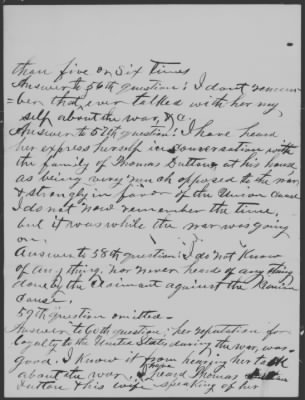 than five or six times
Answer to 56th question: I dont remem-
=ber that I ever talked with her my
self about the war, &c.
Answer to 57th question: I have heard
her express herself in conversation with
the family of Thomas Dutton, at his house,
as being very much opposed to the war,
& strongly in favor of the Union Cause
I do not now remember the time,
but it was while the war was going
on.
Answer to 58th question: I do not Know
of any thing, nor never heard of any thing
done by the claimant against the Union
cause.
59th question omitted.
Answer to 60th question: her reputation for
loyalty to the United States during the war, was
good. I know it from hearing her talk
about the war. I have heard Thomas
Dutton & his wife speaking of her